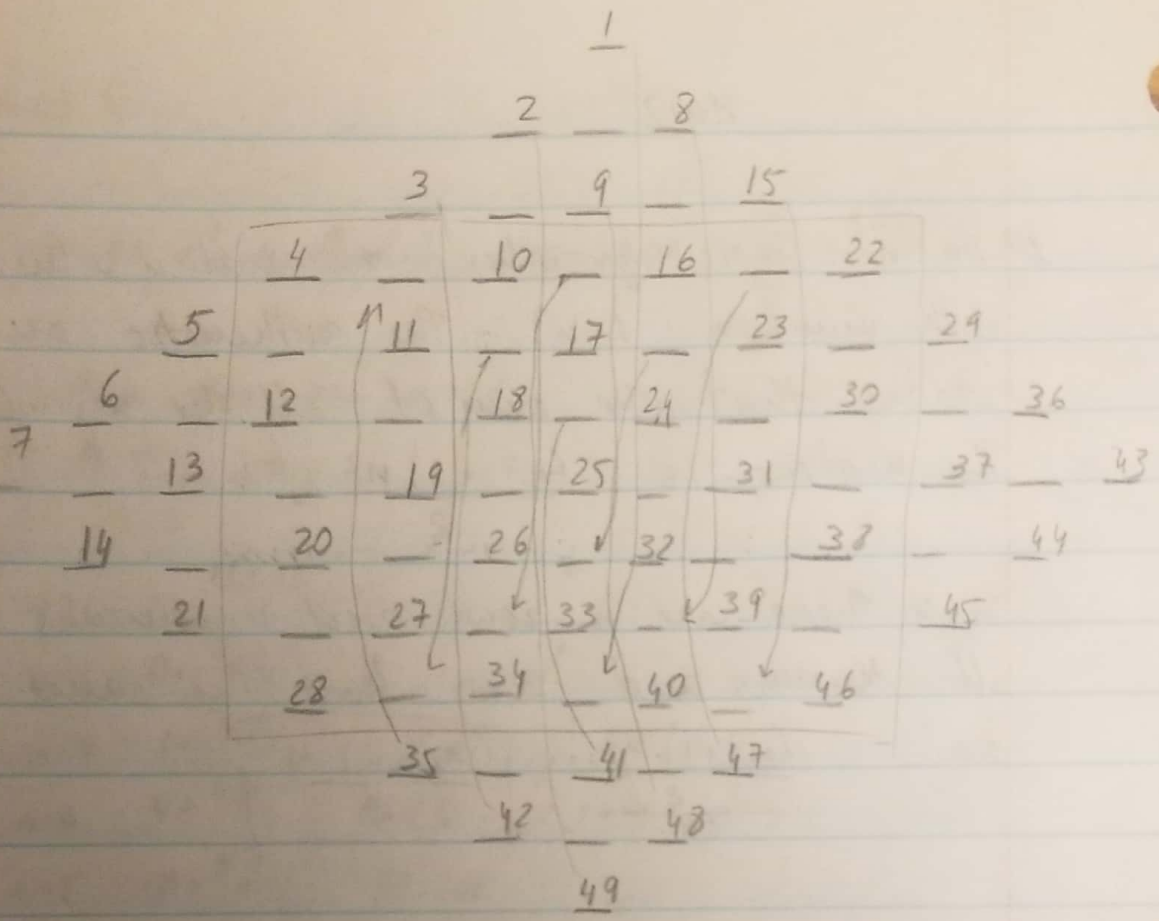 1
2 8
3 9 15
4 10 16 22
5 11 17 23 29
6 12 18 24 30 36
7 13 19 25 31 37 43
14 20 26 32 38 44
21 27 33 39 45
28 34 40 46
35 41 47
42 48
49